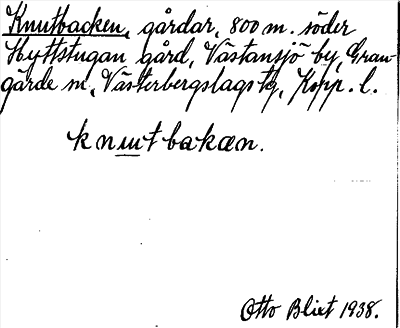 Knutbacken, gårdar, 800 m. söder
Hyttstugan gård, Västansjö by, Gran-
gärde sn, Västerbergslags tg, Kopp. l.
knutbakæn.
Otto Blixt 1938.